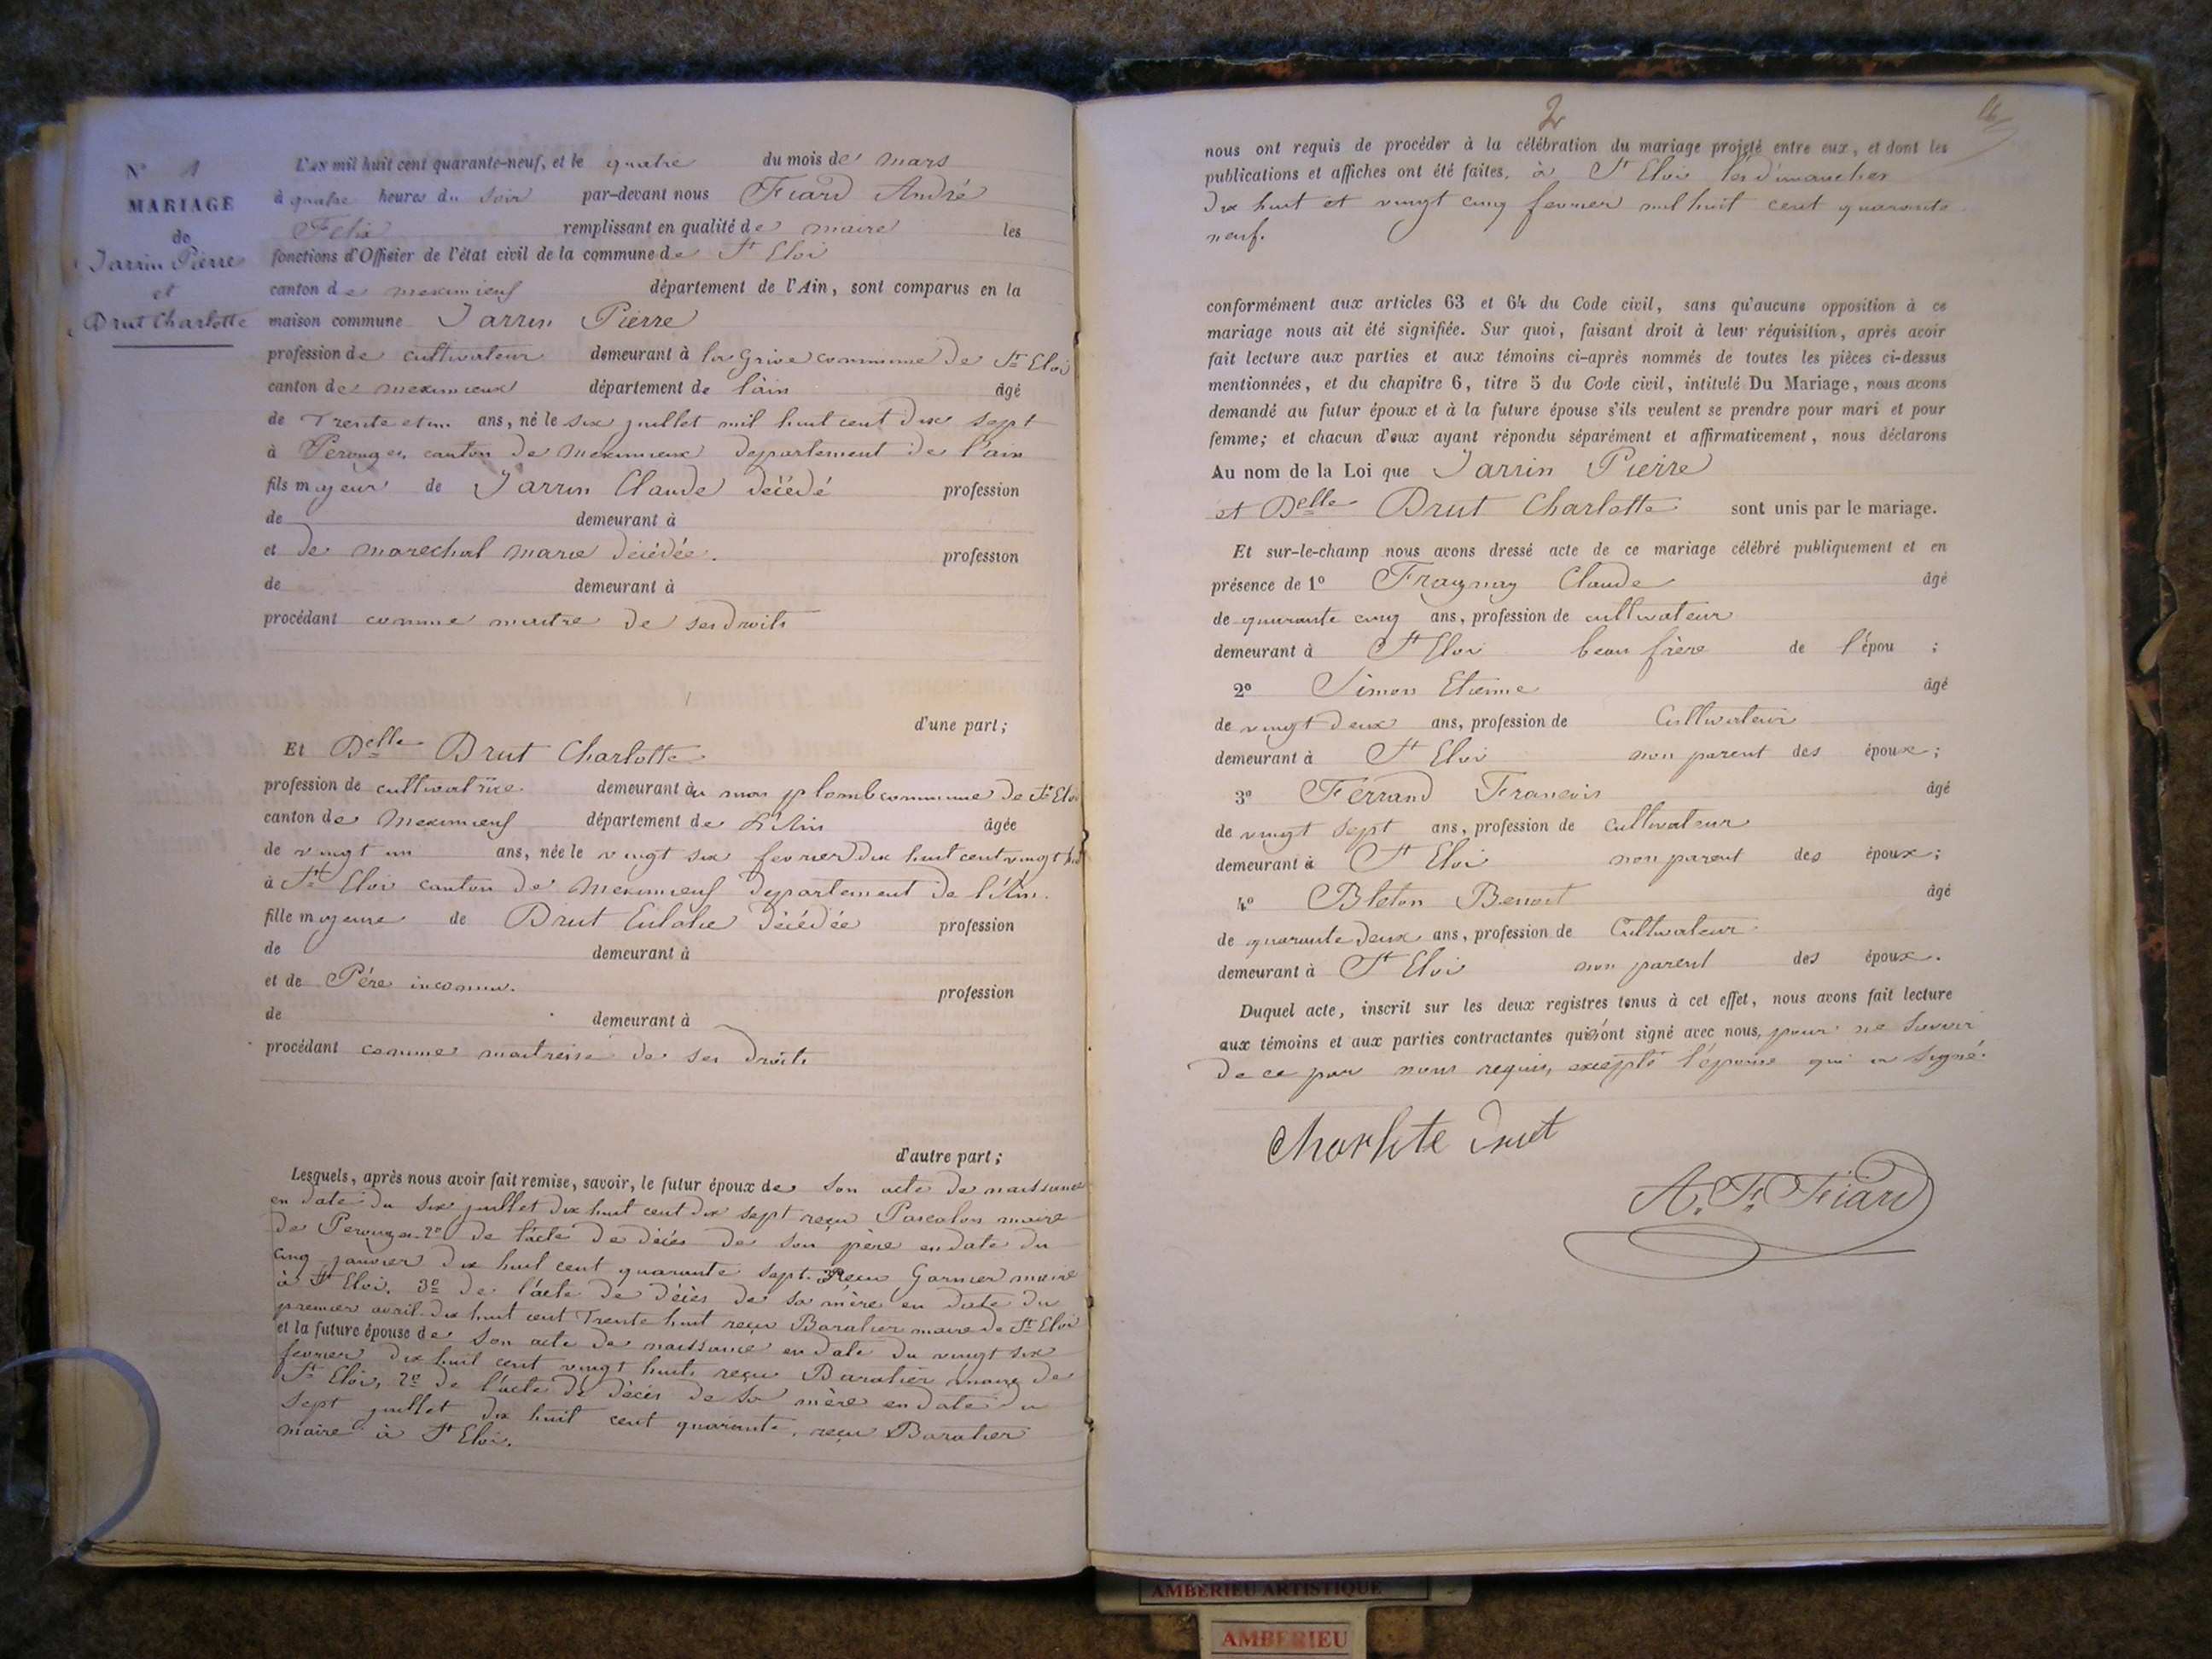 N° 1
MARIAGE
de
Jarrin Pierre
et
Brut Charlotte
L'an mil huit cent quarante-neuf, et le quatre du mois de mars
à quatre heures du soir par-devant nous Fiard André
Felix remplissant en qualité de maire les
fonctions d'Officier de l'état civil de la commune de St Eloi
canton de meximieuf département de l'Ain, sont comparus en la
maison commune Jarrin Pierre
profession de cultivateur demeurant à la Grive commune de St Eloi
canton de meximieux département de l'ain âgé
de Trente et un ans, né le six juillet mil huit cent dix sept
à Perouges canton de meximieux departement de l'ain
fils majeur de Jarrin Claude décédé profession
de demeurant à
et de marechal marie décédée. profession
de demeurant à
procédant comme maitre de ses droits
d'une part;
Et Delle Brut Charlotte
profession de cultivatrice demeurant au mas plomb commune de St Eloi
canton de Meximieuf département de L'Ain âgée
de vingt un ans, née le vingt six fevrier dix huit cent vingt huit
à St Eloi canton de Meximieuf departement de l'Ain.
fille majeure de Brut Eulalie décédée profession
de demeurant à
et de Père inconnu. profession
de demeurant à
procédant comme maitresse de ses droits
d'autre part;
Lesquels, après nous avoir fait remise, savoir, le futur époux de son acte de naissance
en date du six juillet dix huit cent dix sept reçu Pascalon maire
de Perouges 2° de l'acte de décès de son père en date du
cinq janvier dix huit cent quarante sept. Reçu Garnier maire
à St Eloi. 3° de l'acte de décès de sa mère en date du
premier avril dix huit cent Trente huit reçu Baralier maire de St Eloi
et la future épouse de son acte de naissance en date du vingt six
fevrier dix huit cent vingt huit reçu Baralier maire de
St Eloi, 2° de l'acte de décès de sa mère en date du
sept juillet dix huit cent quarante, reçu Baralier
maire à St Eloi.
2
nous ont requis de procéder à la célébration du mariage projeté entre eux, et dont les
publications et affiches ont été faites, à St Eloi les dimanches
dix huit et vingt cinq fevrier mil huit cent quarante
neuf.
conformément aux articles 63 et 64 du Code civil, sans qu'aucune opposition à ce
mariage nous ait été signifiée. Sur quoi, faisant droit à leur réquisition, après avoir
fait lecture aux parties et aux témoins ci-après nommés de toutes les pièces ci-dessus
mentionnées, et du chapitre 6, titre 5 du Code civil, intitulé Du Mariage, nous avons
demandé au futur époux et à la future épouse s'ils veulent se prendre pour mari et pour
femme; et chacun d'eux ayant répondu séparément et affirmativement, nous déclarons
Au nom de la Loi que Jarrin Pierre
et Delle Brut Charlotte sont unis par le mariage.
Et sur-le-champ nous avons dressé acte de ce mariage célébré publiquement et en
présence de 1° Fragnay Claude âgé
de quarante cinq ans, profession de cultivateur
demeurant à St Eloi beau frère de l'épou ;
2° Simon Etienne âgé
de vingt deux ans, profession de Cultivateur
demeurant à St Eloi non parent des époux;
3° Ferrand Francois âgé
de vingt sept ans, profession de cultivateur
demeurant à St Eloi non parent des époux;
4° Bleton Benoit âgé
de quarante deux ans, profession de Cultivateur
demeurant à St Eloi non parent des époux.
Duquel acte, inscrit sur les deux registres tenus à cet effet, nous avons fait lecture
aux témoins et aux parties contractantes qui n'ont signé avec nous, pour ne savoir
de ce par nous requis, excepté l'épouse qui a signé.
Charlote Brut
A. F. Fiard
AMBERIEU ARTISTIQUE
AMBERIEU